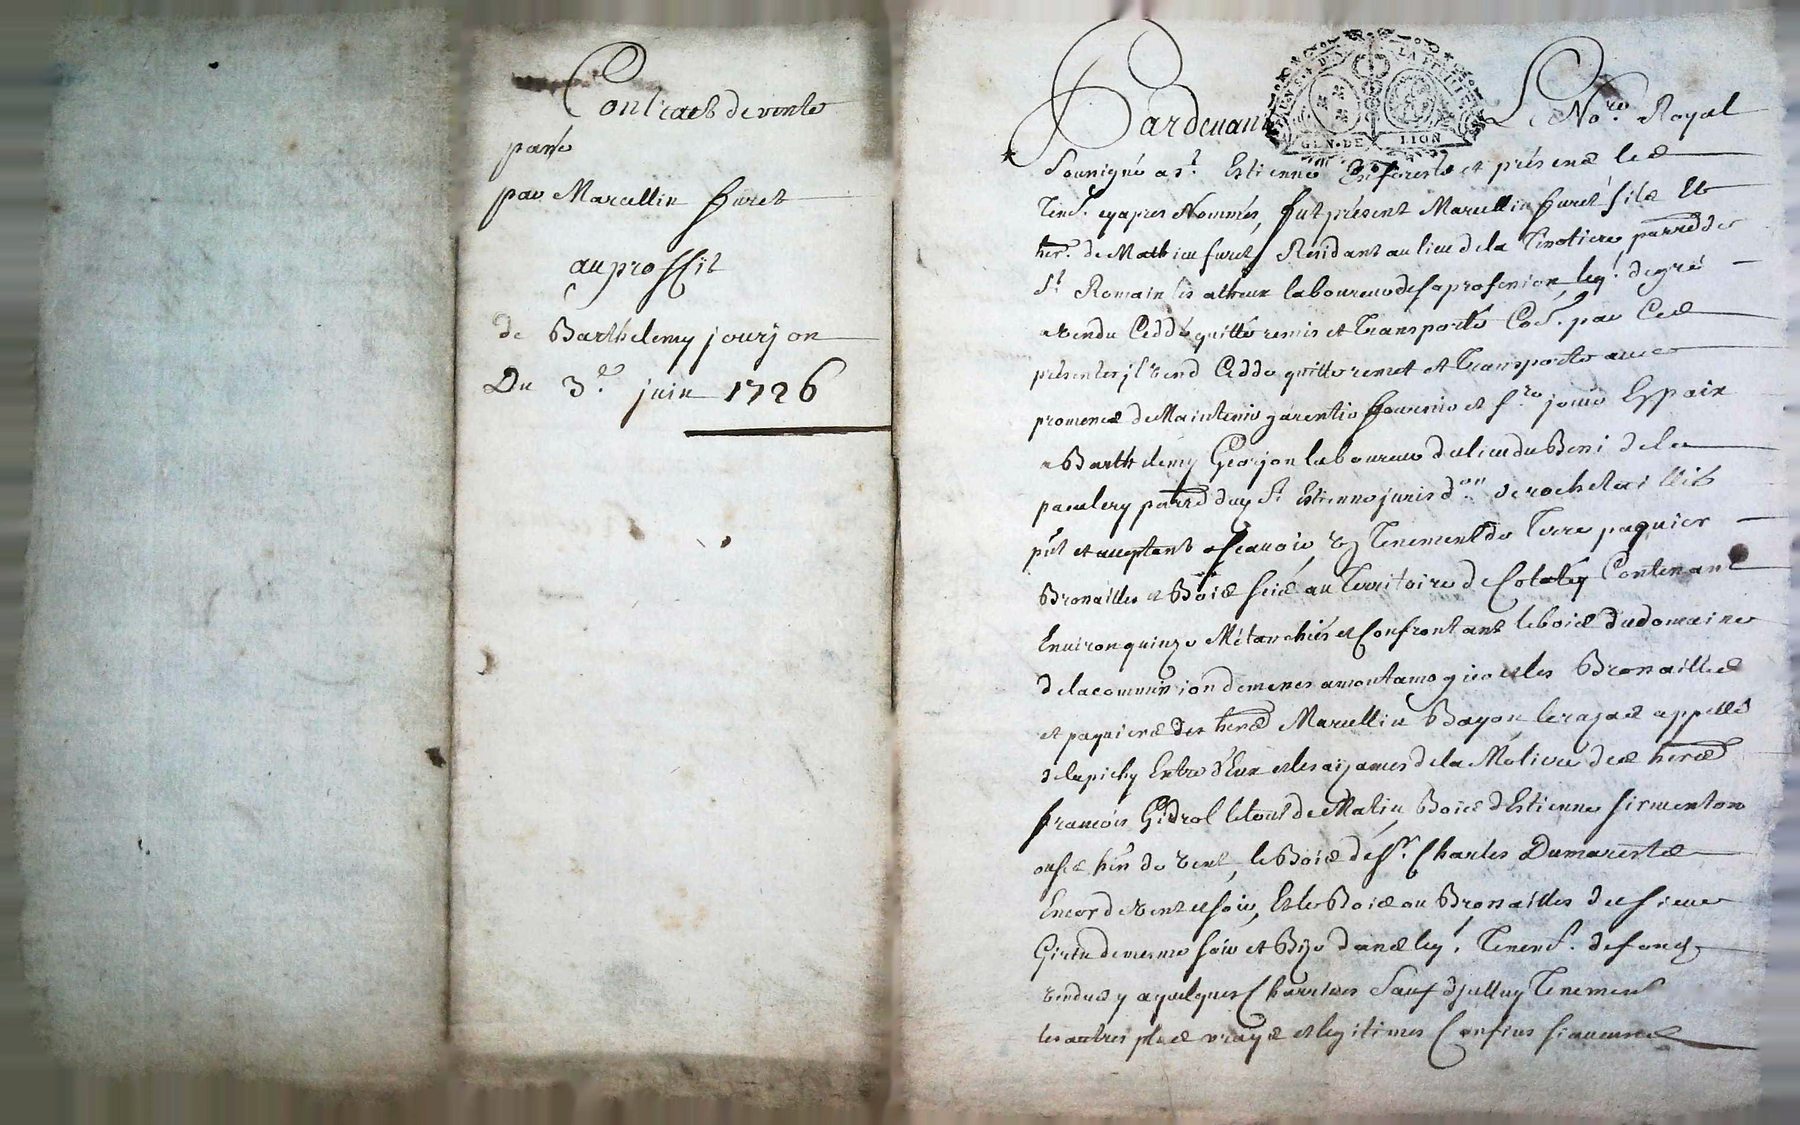 Contract de vente
passé
par Marcellin furet
au proffit
de Barthelemy jourjon
Du 3e juin 1726
GEN. DE LION
Pardevant Le Nore Royal
Soussigné a St. Estienne En forests et présens les
tems. cy apres Nommés, fut présent Marcellin furet fils Et
her. de Mathieu furet Residant au lieu de la parre de
St Romain les atheux laboureur de sa profession leql. de gré
a vendu Ceddé quitté remis et transporté Coe. par Ces
présentes jl vend Cedde quitte remet et Transporte avec
promesse de Maintenir garentir fournir et fre jouir En paix
a Barthelemy Georjon laboureur du lieu du Beni de la
parre duy St Estienne jurisdon de rochetaillis
pnt et aceptant ascavoir un Tenement de Terre paquier
Brosailles et Bois scis au Territoire de Contenant
Environ quinze Métanchés et Confrontant le bois du domaine
de la commission de et les Brosailles
et paquiers des hers Marcellin Bayon le rases appellé
de la pichy Entre d'Eux et les aizances de la Moliere des hers
francois Gidrol le tout de Matin, Bois d'Estienne firmenton
ou ses hers de vent, le Bois de Sr. Charles Dumarest
Encor de vent et soir, Et le Bois ou Brosailles de sieur
de mesme soir et Bize dans leql. Tenemt. de fonds
vendus y a quelques Charrieres Sauf djcelluy Tenement
les autres plus vrays et legitimes Confins